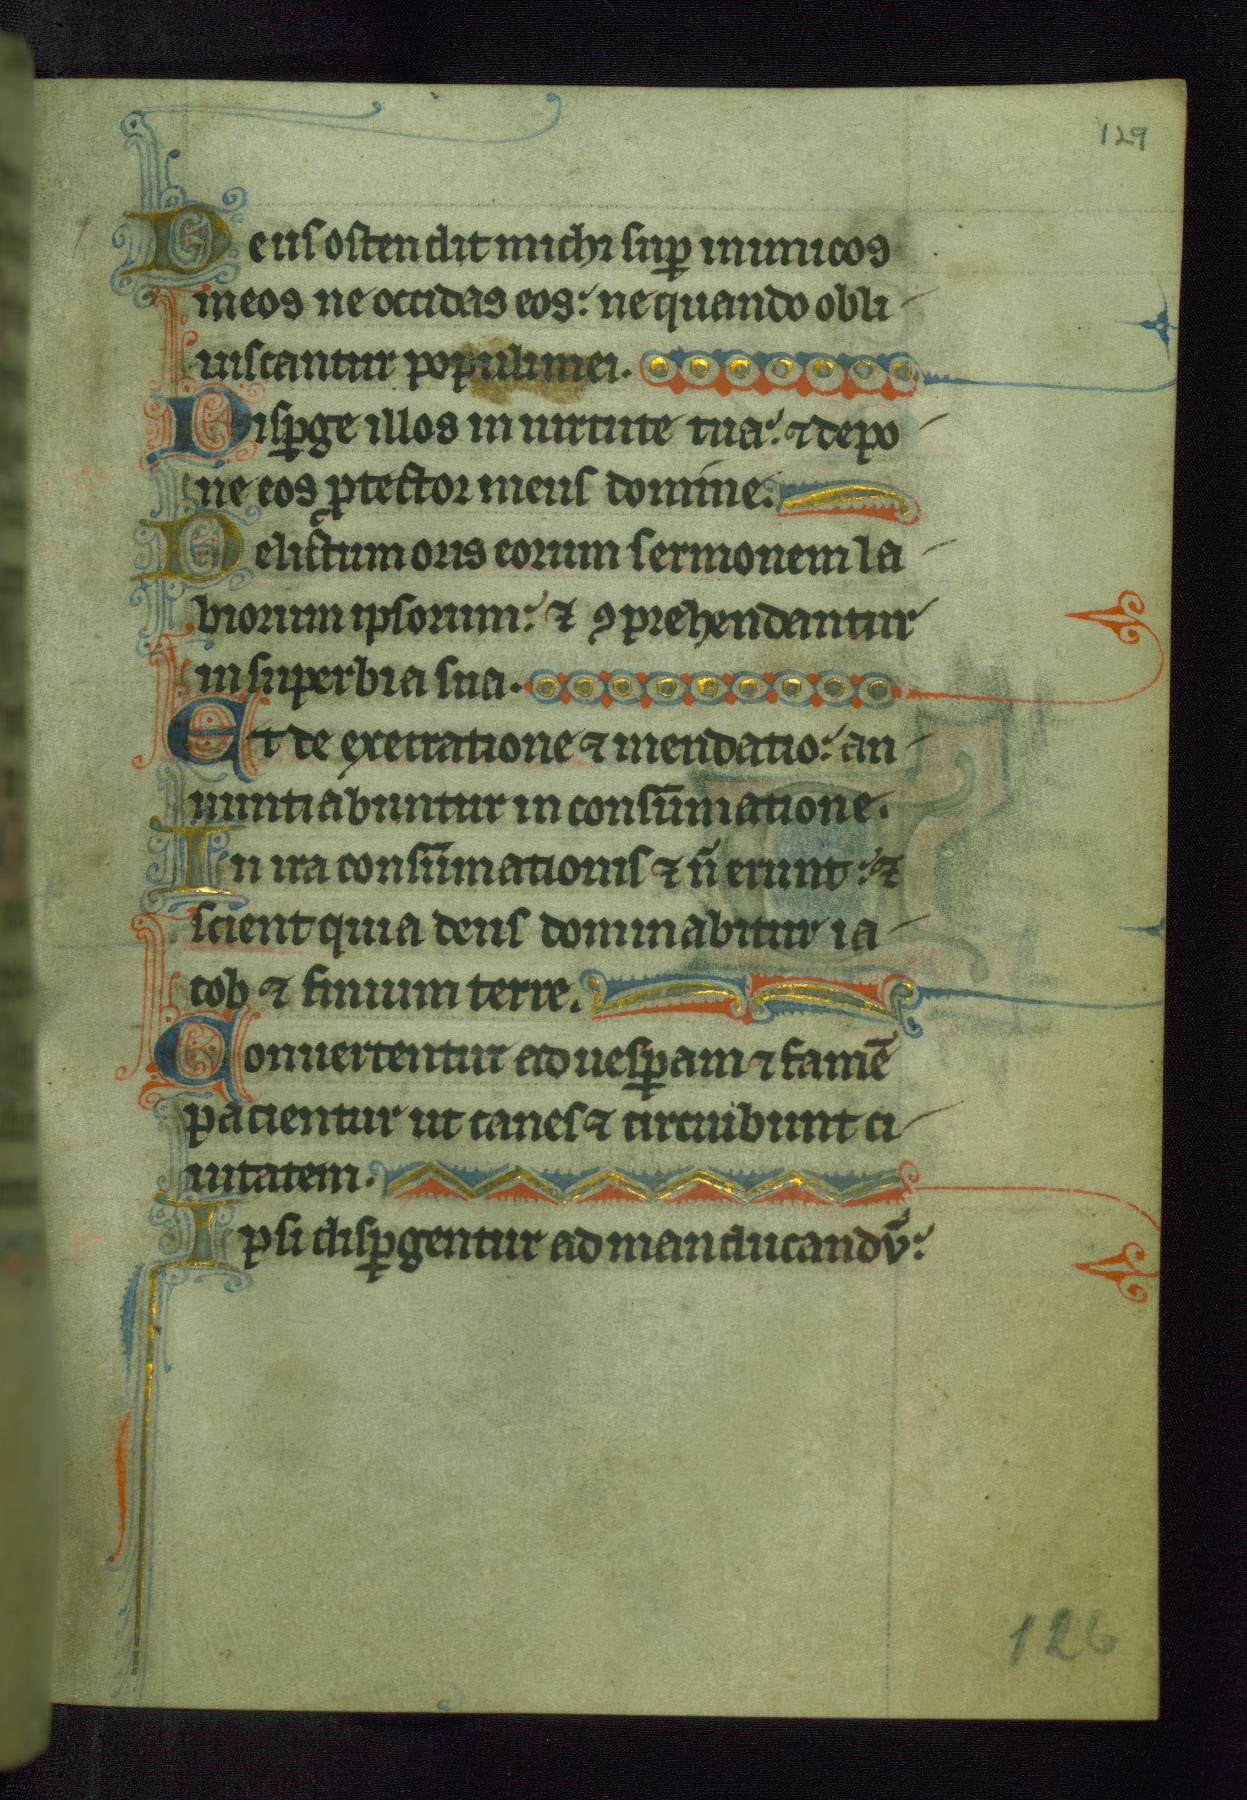 129
Deus ostendit michi sup inimicos
meos ne occidas eos: ne quando obli
uiscantur populi mei.
Dispge illos in uirtute tua: ⁊ depo
ne eos ptector meus domine.
Delictum oris eorum sermonem la
biorum ipsorum: ⁊ ꝯprehendantur
in superbia sua.
Et de execratione ⁊ mendatio: an
nuntiabuntur in consūmatione.
In ira consūmationis ⁊ ñ erunt: ⁊
scient quia deus dominabitur ia
cob ⁊ finium terre.
Conuertentur ad uespam ⁊ famē
pacientur ut canes ⁊ circuibunt ci
uitatem.
Ipsi dispgentur ad manducandū:
126